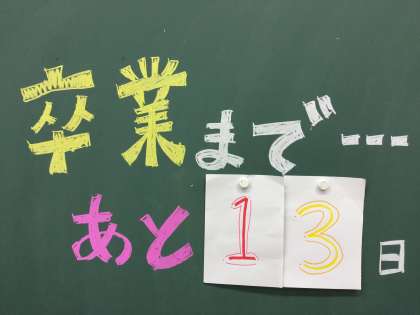 卒業まで---
あと13日